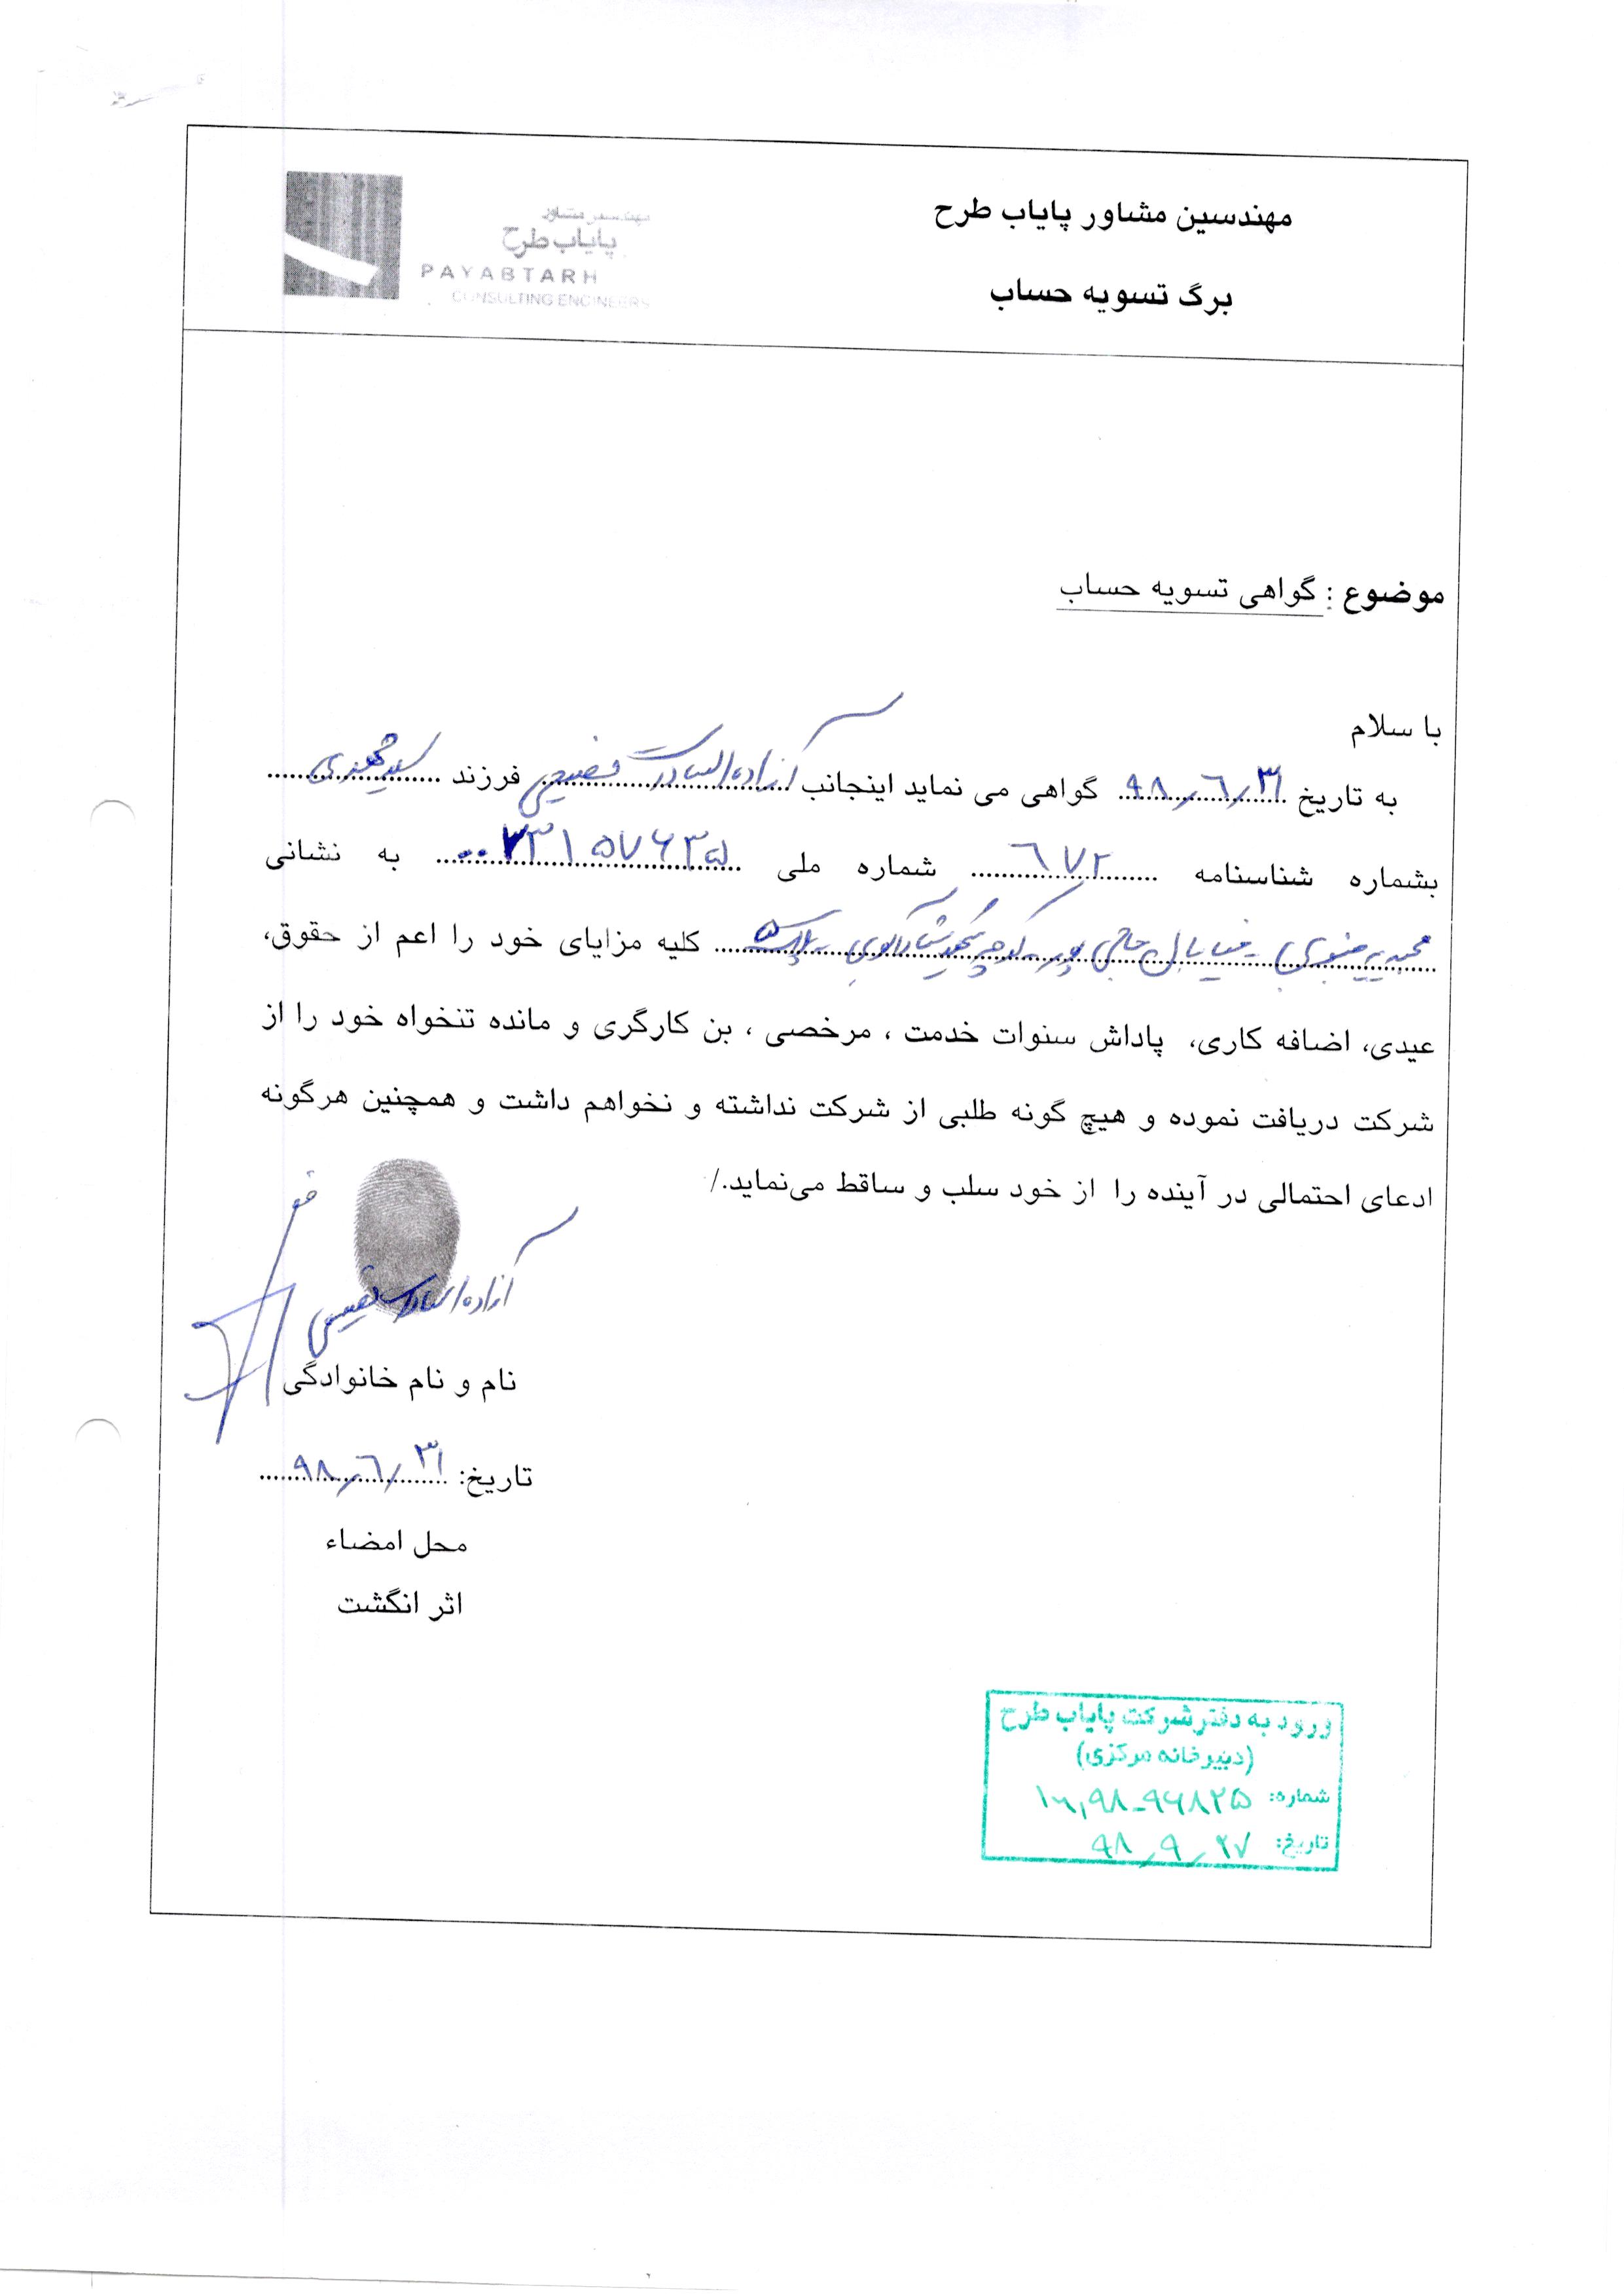 مهندسین مشاور پایاب طرح
برگ تسویه حساب
مهندسین مشاور
پایاب طرح
PAYABTARH
CONSULTING ENGINEERS
موضوع : گواهی تسویه حساب
با سلام
به تاریخ ۹۸/۶/۳۱ گواهی می نماید اینجانب آزاده السادات فرزند
بشماره شناسنامه ۶۷۲ شماره ملی ۰۰۷۳۱۵۷۶۳۵ به نشانی
پلاک ۵ کلیه مزایای خود را اعم از حقوق،
عیدی، اضافه کاری، پاداش سنوات خدمت ، مرخصی ، بن کارگری و مانده تنخواه خود را از
شرکت دریافت نموده و هیچ گونه طلبی از شرکت نداشته و نخواهم داشت و همچنین هرگونه
ادعای احتمالی در آینده را از خود سلب و ساقط می‌نماید./
آزاده السادات
نام و نام خانوادگی
تاریخ: ۹۸/۶/۳۱
محل امضاء
اثر انگشت
ورود به دفتر شرکت پایاب طرح
(دبیرخانه مرکزی)
شماره:
تاریخ: ۹۸/۹/۲۷